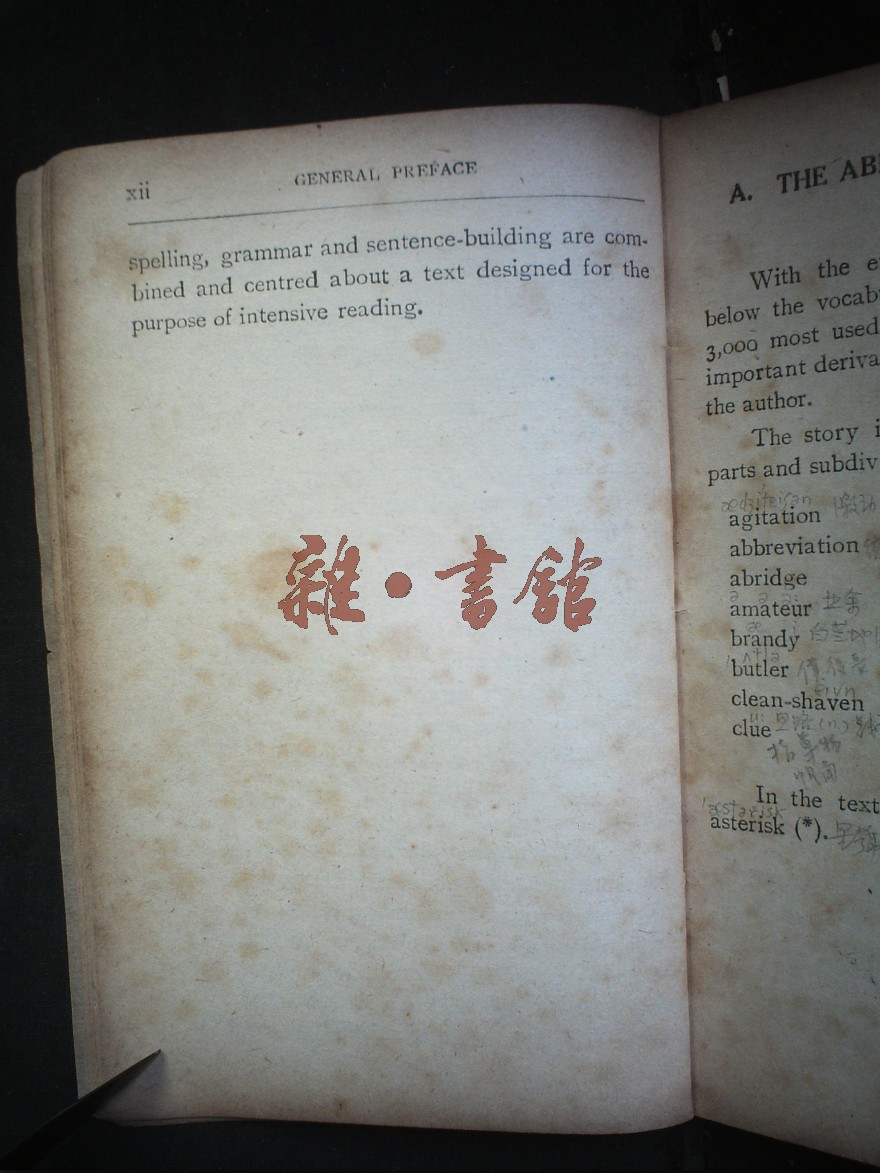 xii
GENERAL PREFACE
spelling, grammar and sentence-building are com-
bined and centred about a text designed for the
purpose of intensive reading.
雜·書館
A. THE AB
With the e
below the vocab
3,000 most used
important deriva
the author.
The story i
parts and subdiv
agitation
abbreviation
abridge
amateur
brandy
butler
clean-shaven
clue
In the text
asterisk (*).